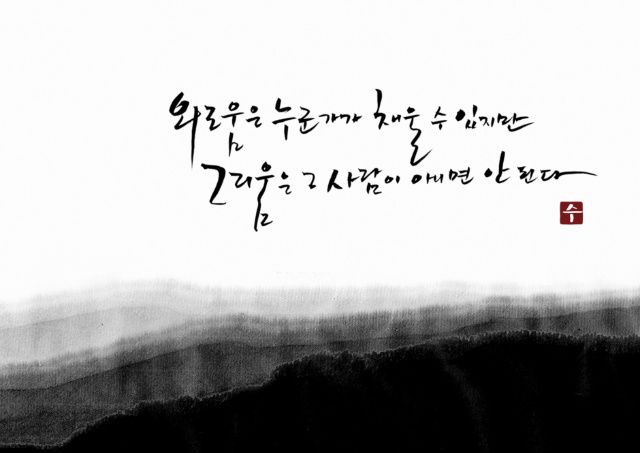 외로움은 누군가가 채울 수 있지만
그리움은 그 사람이 아니면 안 된다
수